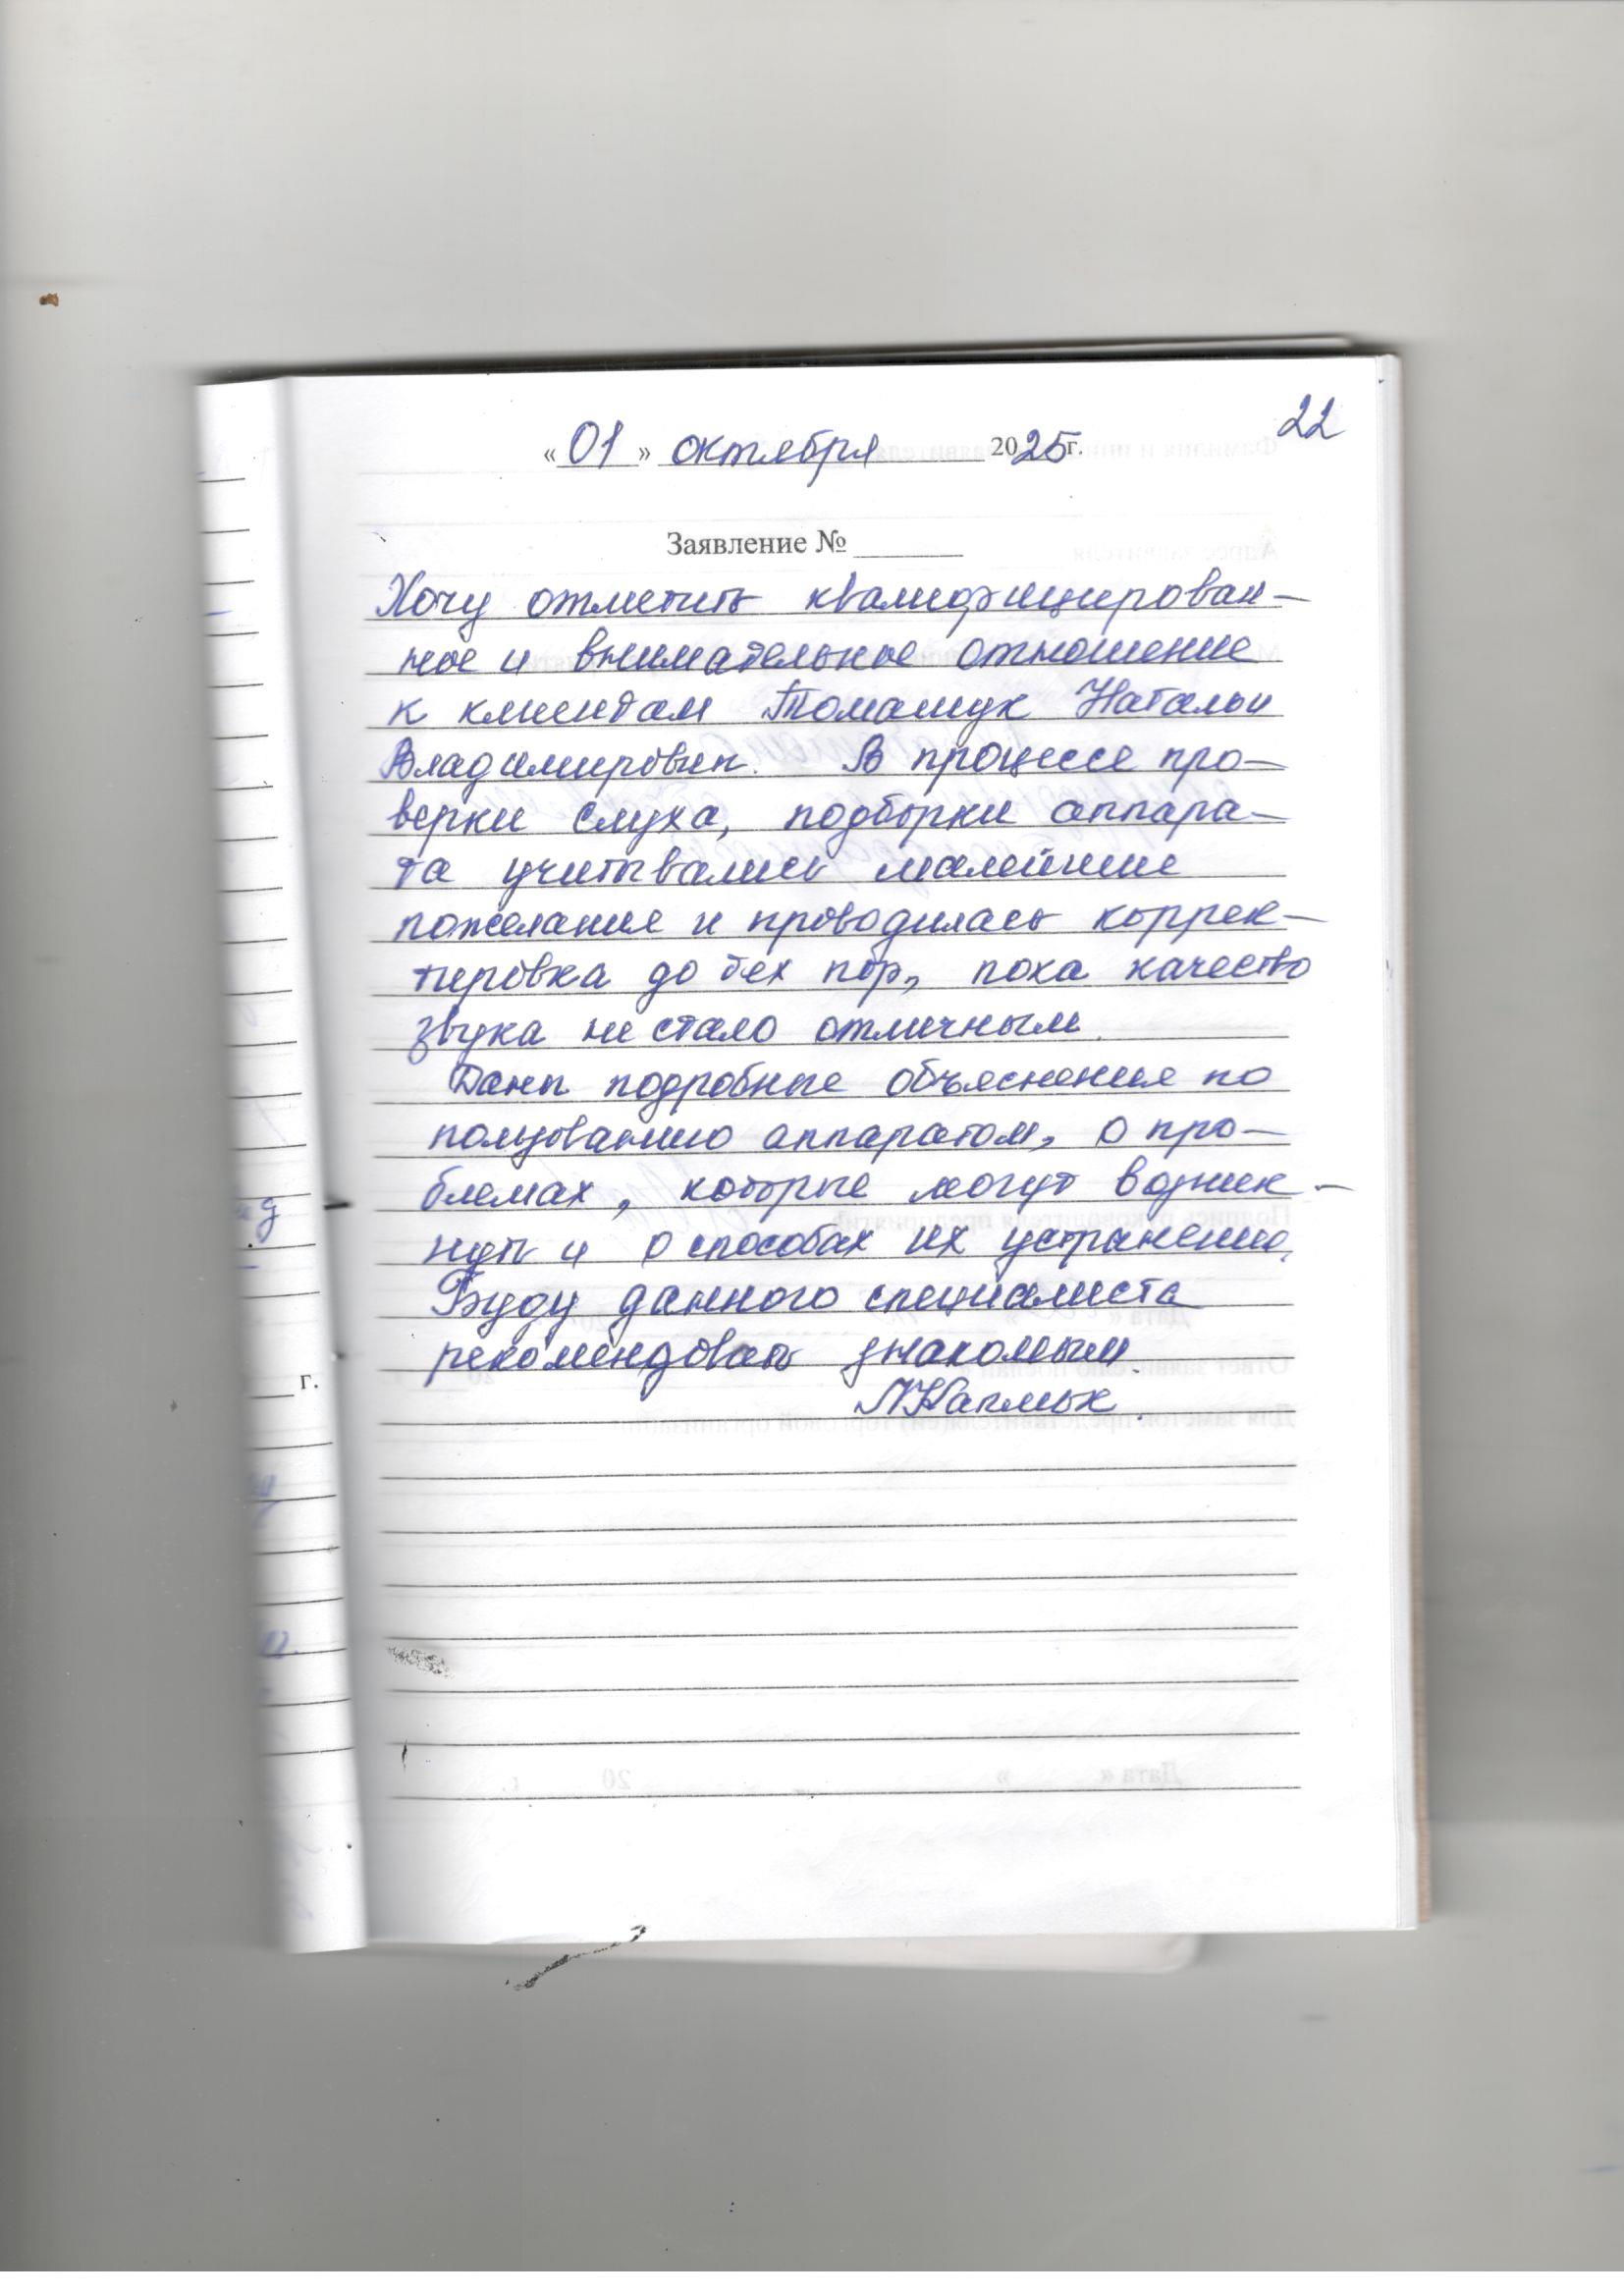 22
« 01 » октября 2025г.
Заявление №
Хочу отметить квалифицирован-
ное и внимательное отношение
к клиентам Томашук Натальи
Владимировны. В процессе про-
верки слуха, подборки аппара-
та учитывались малейшие
пожелания и проводилась коррек-
тировка до тех пор, пока качество
звука не стало отличным.
Даны подробные объяснения по
пользованию аппаратом, о про-
блемах, которые могут возник-
нуть и о способах их устранения.
Буду данного специалиста
рекомендовать знакомым.
г.